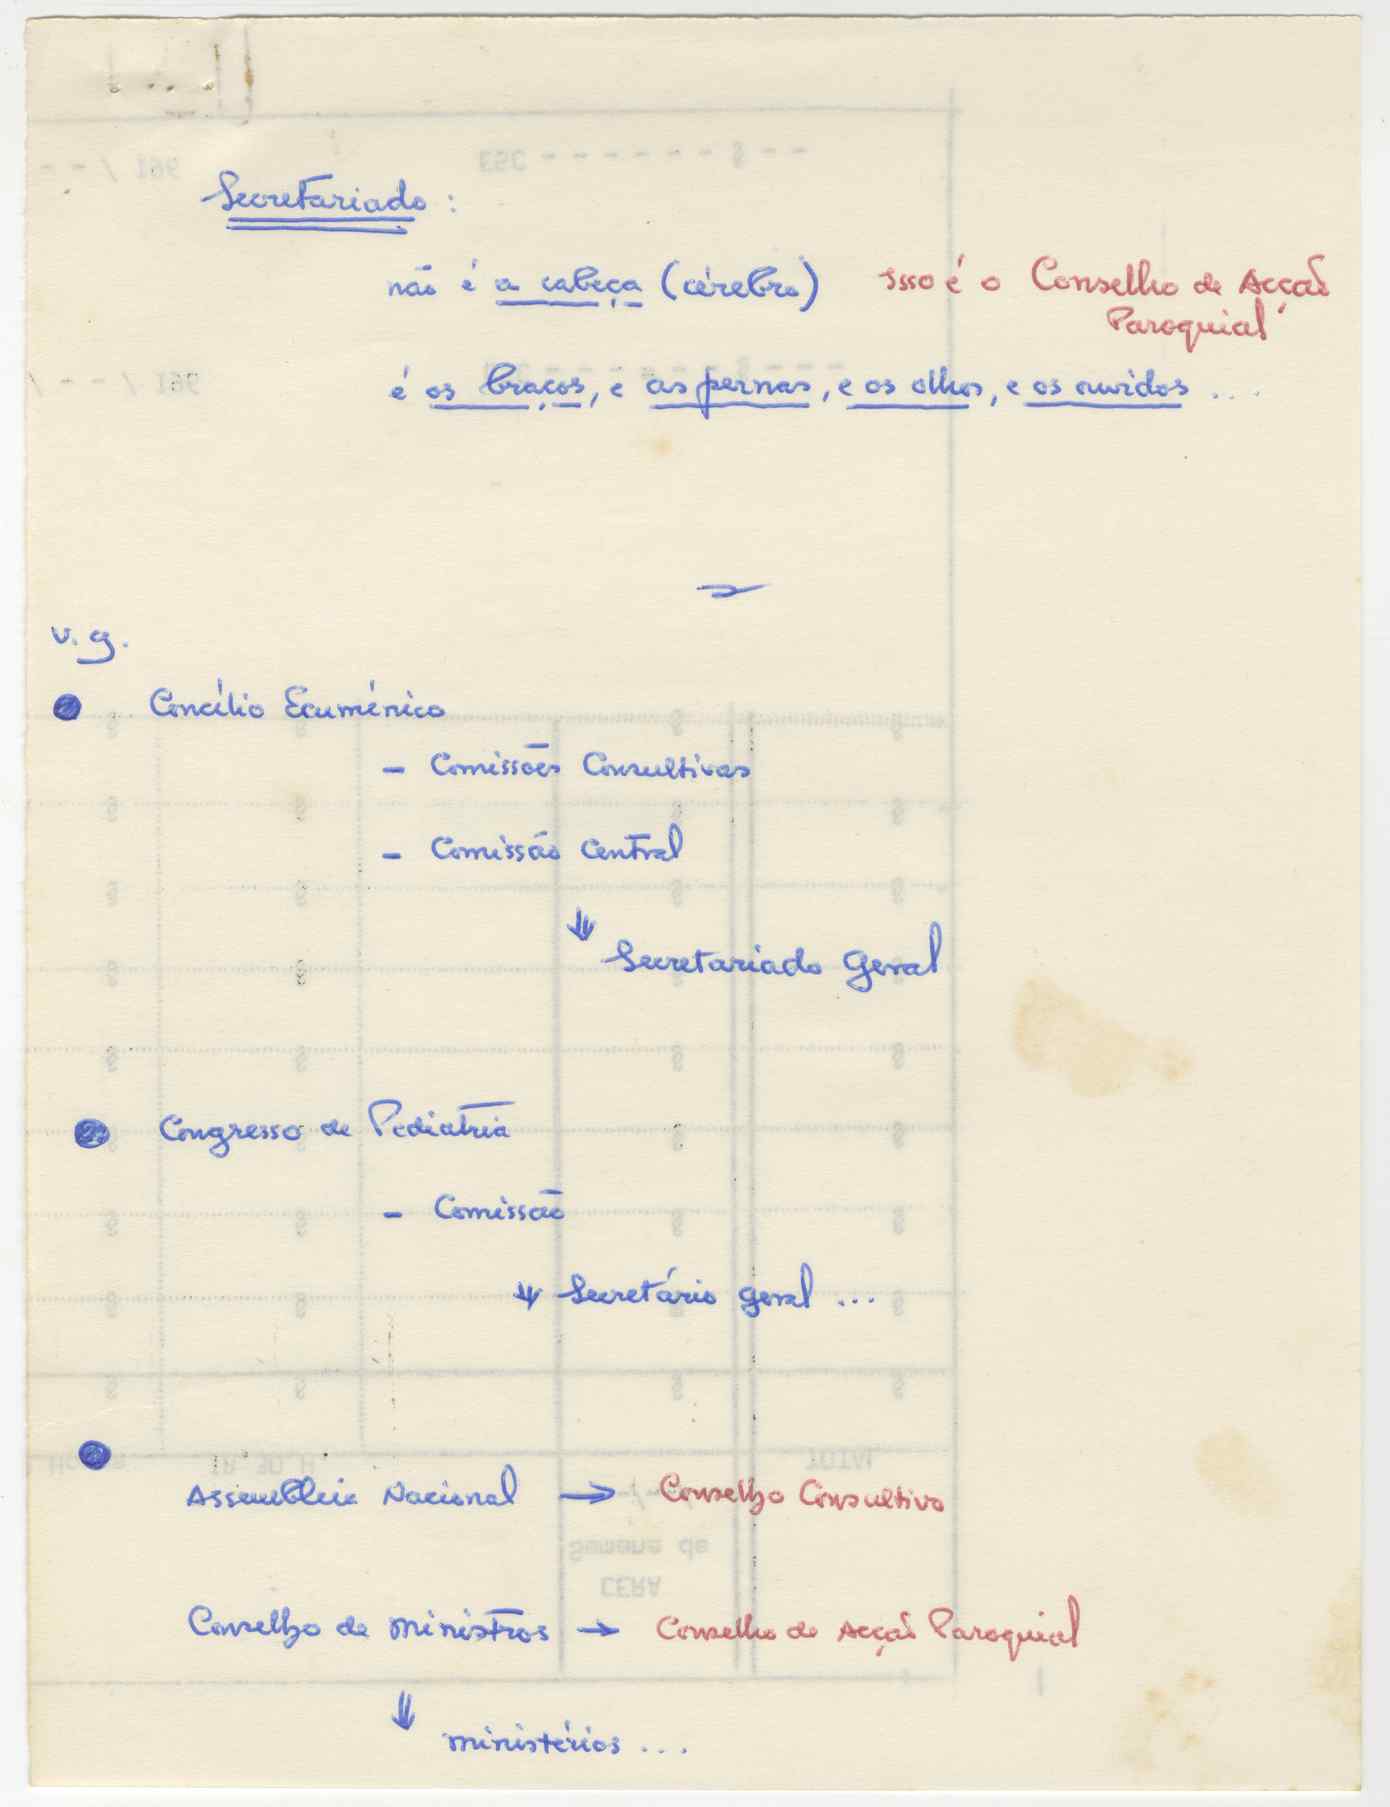 Secretariado :
não é a cabeça (cérebro) isso é o Conselho de Acção
Paroquial
é os braços, e as pernas, e os olhos, e os ouvidos ...
v.g.
Concílio Ecuménico
- Comissões Consultivas
- Comissão Central
↓ Secretariado Geral
Congresso de Pediatria
- Comissão
↓ Secretário geral ...
Assembleia Nacional → Conselho Consultivo
Conselho de ministros → Conselho de Acção Paroquial
↓ ministérios ...